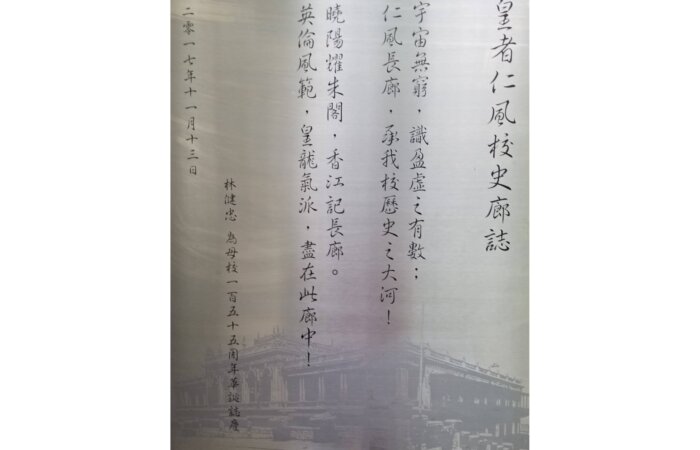 皇者仁風校史廊誌
宇宙無窮，識盈虛之有數；
仁風長廊，承我校歷史之大河！
曉陽耀朱閣，香江記長廊。
英倫風範，皇龍氣派，盡在此廊中！
林健忠 為母校一百五十五周年華誕誌慶
二零一七年十一月十三日